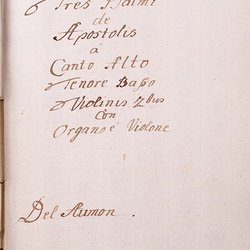 Tres Psalmi
de
Apostolis
a
Canto Alto
Tenore Basso
Violinis 2bus
Con
Organo è Violone
Del Aumon.